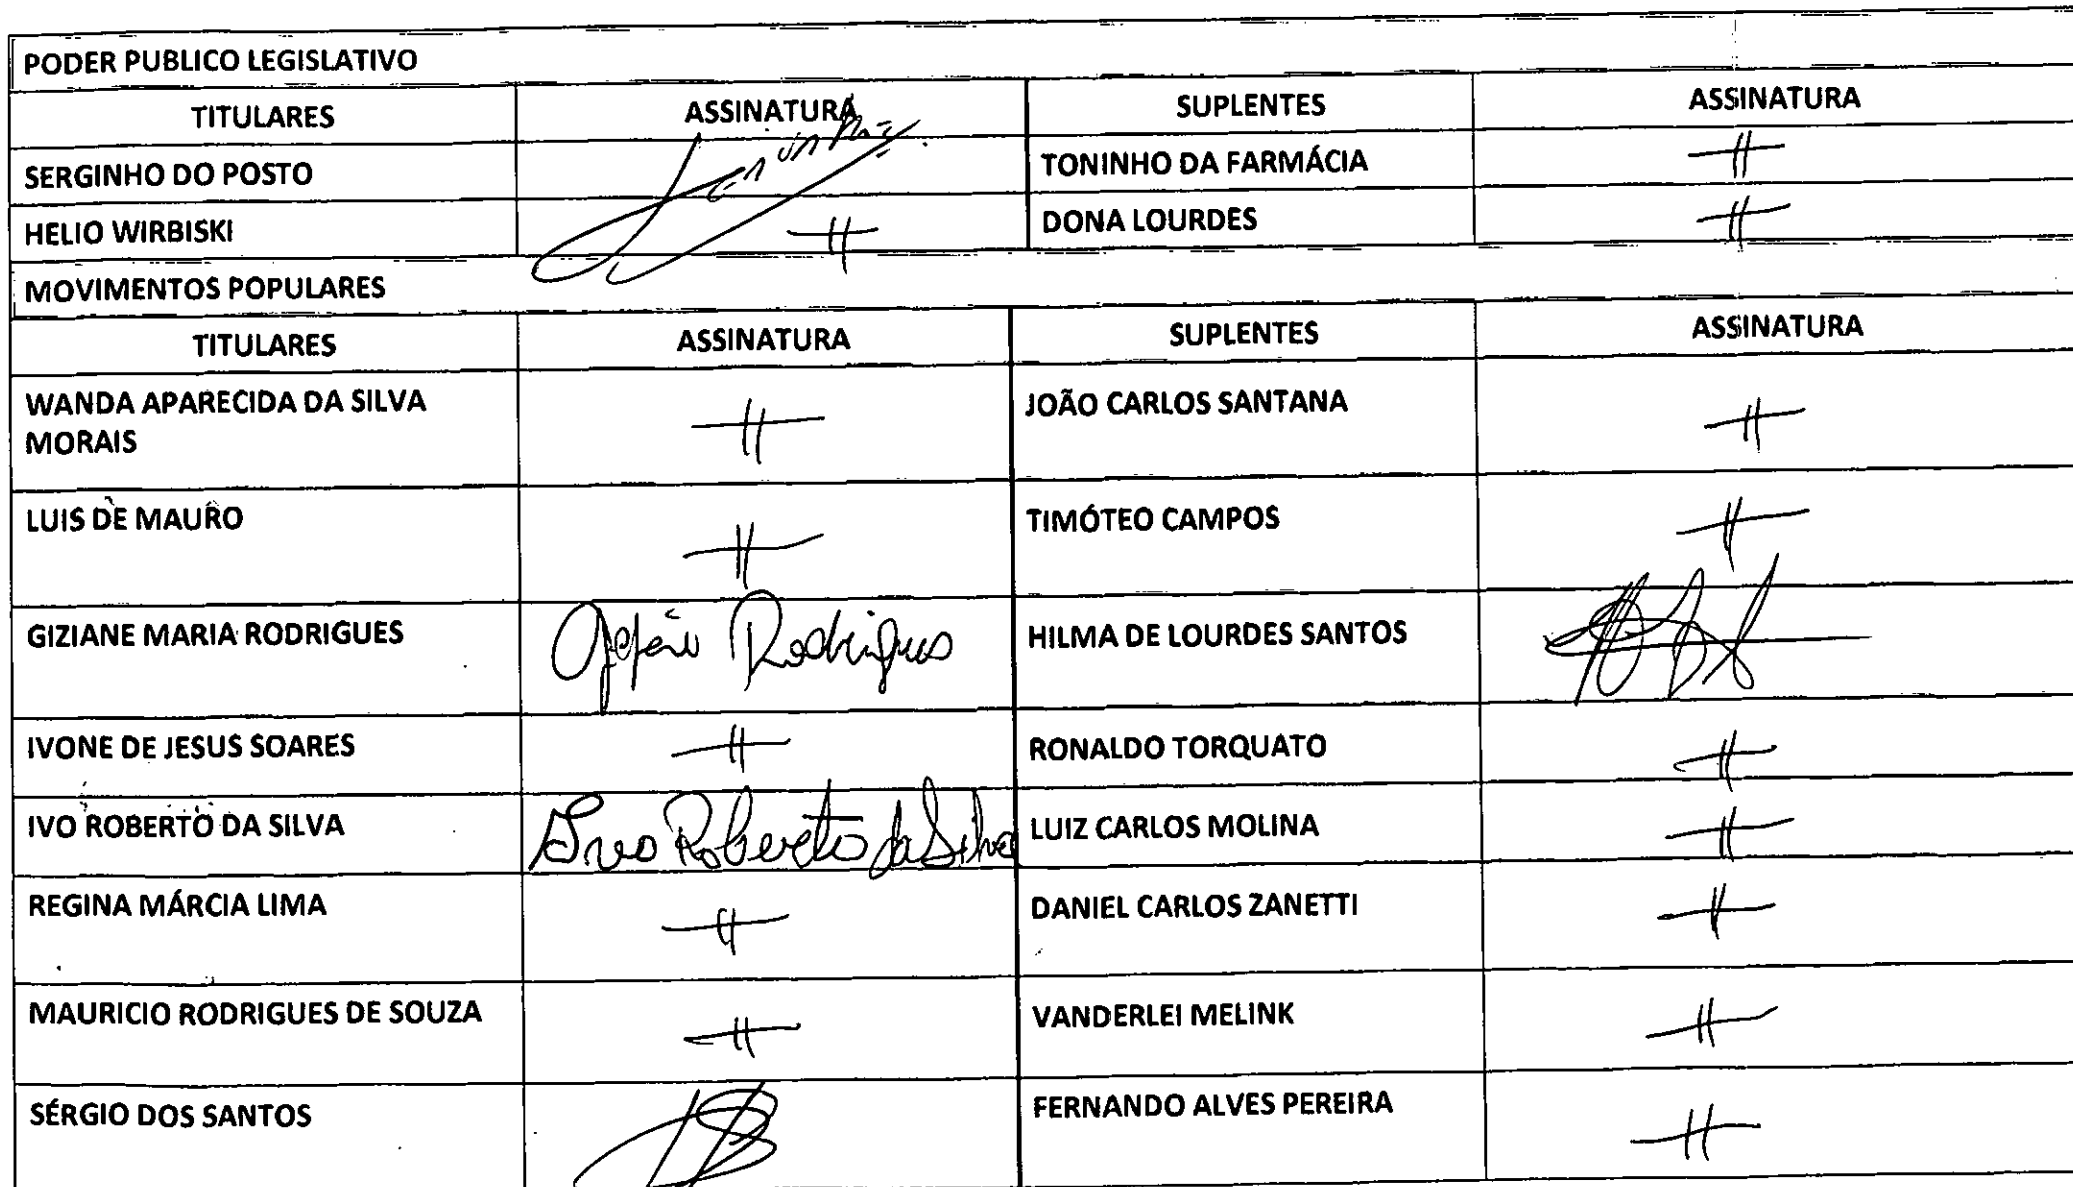 PODER PUBLICO LEGISLATIVO
TITULARES ASSINATURA SUPLENTES ASSINATURA
SERGINHO DO POSTO TONINHO DA FARMÁCIA
HELIO WIRBISKI DONA LOURDES
MOVIMENTOS POPULARES
TITULARES ASSINATURA SUPLENTES ASSINATURA
WANDA APARECIDA DA SILVA JOÃO CARLOS SANTANA
MORAIS
LUIS DE MAURO TIMÓTEO CAMPOS
GIZIANE MARIA RODRIGUES Rodrigues HILMA DE LOURDES SANTOS
IVONE DE JESUS SOARES RONALDO TORQUATO
IVO ROBERTO DA SILVA Ivo Roberto da Silva LUIZ CARLOS MOLINA
REGINA MÁRCIA LIMA DANIEL CARLOS ZANETTI
MAURICIO RODRIGUES DE SOUZA VANDERLEI MELINK
SÉRGIO DOS SANTOS FERNANDO ALVES PEREIRA